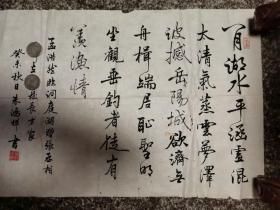 八月湖水平涵虛混
太清氣蒸雲夢澤
波撼岳陽城欲濟無
舟楫端居恥聖明
坐觀垂釣者徒有
羨漁情
孟浩然臨洞庭湖贈張丞相
社長方家
癸未秋日朱鴻書